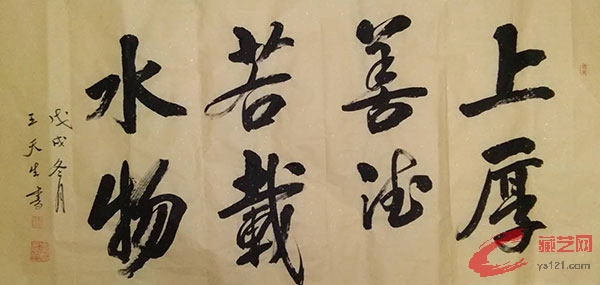 上善若水
厚德載物
戊戌冬月
王天生書
藏艺网
ys121.com